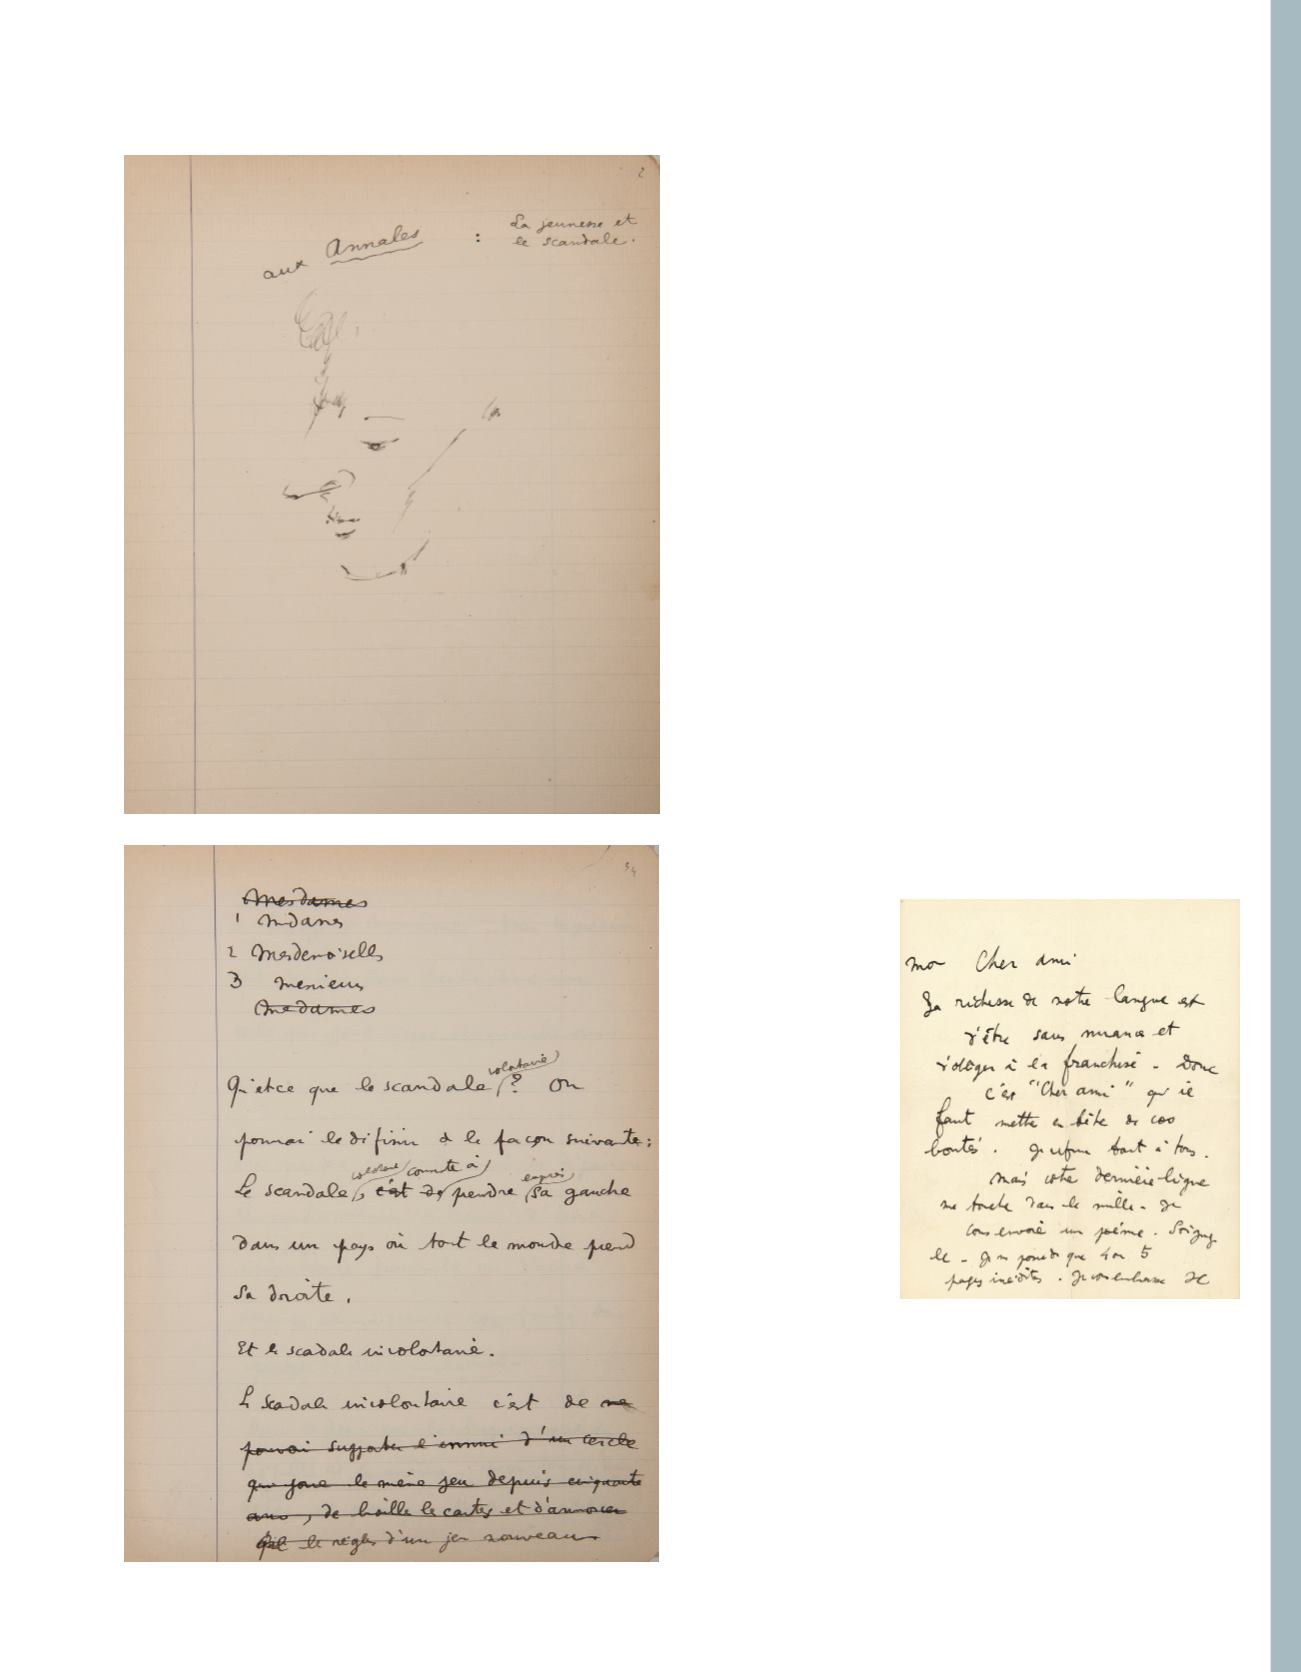 2
aux Annales : La jeunesse et
le scandale.
34
Mesdames
1 Mdames
2 Mesdemoiselles
3 Messieurs
Mesdames
volontaire
Qu'est ce que le scandale ? On
pourrait le définir de la façon suivante :
volontaire consiste à exprès
Le scandale, c'est de prendre sa gauche
dans un pays où tout le monde prend
sa droite.
Et le scandale involontaire.
Le scandale involontaire c'est de ne
pouvoir supporter l'ennui d'un cercle
qui joue le même jeu depuis cinquante
ans, de brouiller les cartes et d'annoncer
les règles d'un jeu nouveau
mon Cher ami
La richesse de notre langue est
d'être sans nuance et
d'obliger à la franchise - Donc
c'est "Cher ami" qu'il
faut mettre en tête de vos
bontés. Je refuse tout à tous.
Mais votre dernière ligne
me touche dans le mille - Je
vous envoie un poème. Soignez
le - Je ne possède que 4 ou 5
pages inédites. Je vous embrasse JC